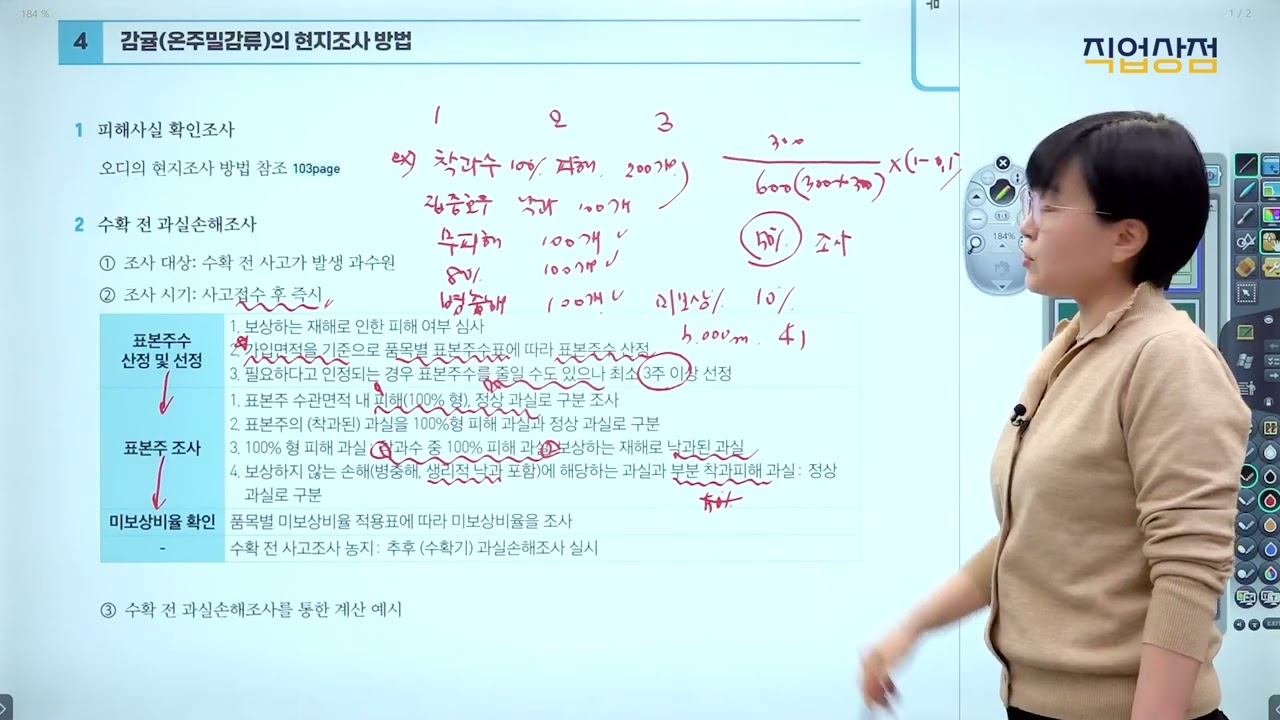 184 %
1 / 2
직업상점
4 감귤(온주밀감류)의 현지조사 방법
1 피해사실 확인조사
오디의 현지조사 방법 참조 103page
2 수확 전 과실손해조사
① 조사 대상: 수확 전 사고가 발생 과수원
② 조사 시기: 사고접수 후 즉시
표본주수
산정 및 선정
1. 보상하는 재해로 인한 피해 여부 심사
2. 가입면적을 기준으로 품목별 표본주수표에 따라 표본주수 산정
3. 필요하다고 인정되는 경우 표본주수를 줄일 수도 있으나 최소 3주 이상 선정
표본주 조사
1. 표본주 수관면적 내 피해(100% 형), 정상 과실로 구분 조사
2. 표본주의 (착과된) 과실을 100%형 피해 과실과 정상 과실로 구분
3. 100% 형 피해 과실 : 착과수 중 100% 피해 과실, 보상하는 재해로 낙과된 과실
4. 보상하지 않는 손해(병충해, 생리적 낙과 포함)에 해당하는 과실과 부분 착과피해 과실 : 정상
과실로 구분
미보상비율 확인
품목별 미보상비율 적용표에 따라 미보상비율을 조사
-
수확 전 사고조사 농지 : 추후 (수확기) 과실손해조사 실시
③ 수확 전 과실손해조사를 통한 계산 예시
1 2 3
ex) 착과수 100% 피해 200개
집중호우 낙과 100개
무피해 100개
80% 100개
병충해 100개
미보상% 10%
5,000m 4
300
600(300+300)
×(1-0.1)
조사
184%
1:1